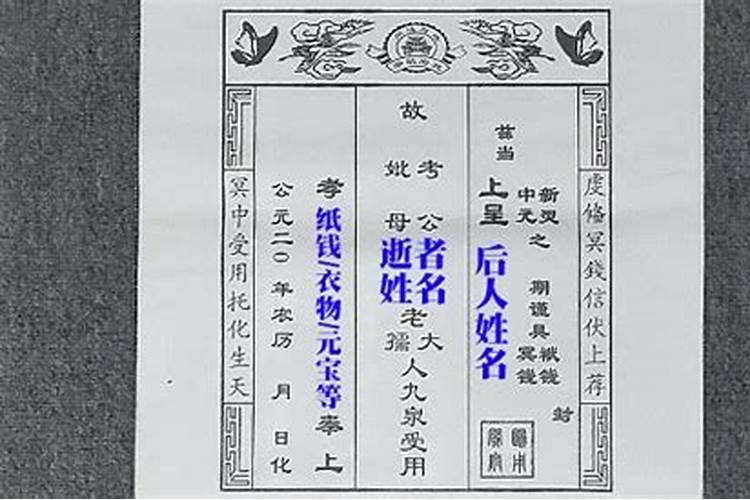 虔脩冥錢信伏上荐
兹当
新灵
中元
之期谨具
袱钱
冥钱
封
上呈
后人姓名
故
考
妣
公
母
逝者
姓名
老大
孺人九泉受用
孝
纸钱/衣物/元宝等
奉上
公元二0年农历 月 日化
冥中受用托化生天